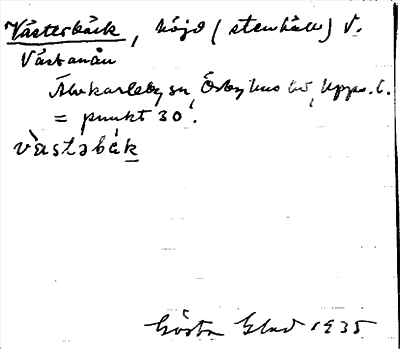 Västerbäck, höjd (stenhäll) V.
Västanån
Älvkarleby sn, Örbyhus hd, Upps. l.
= punkt 30.
västəbäk
Gösta Glad 1935